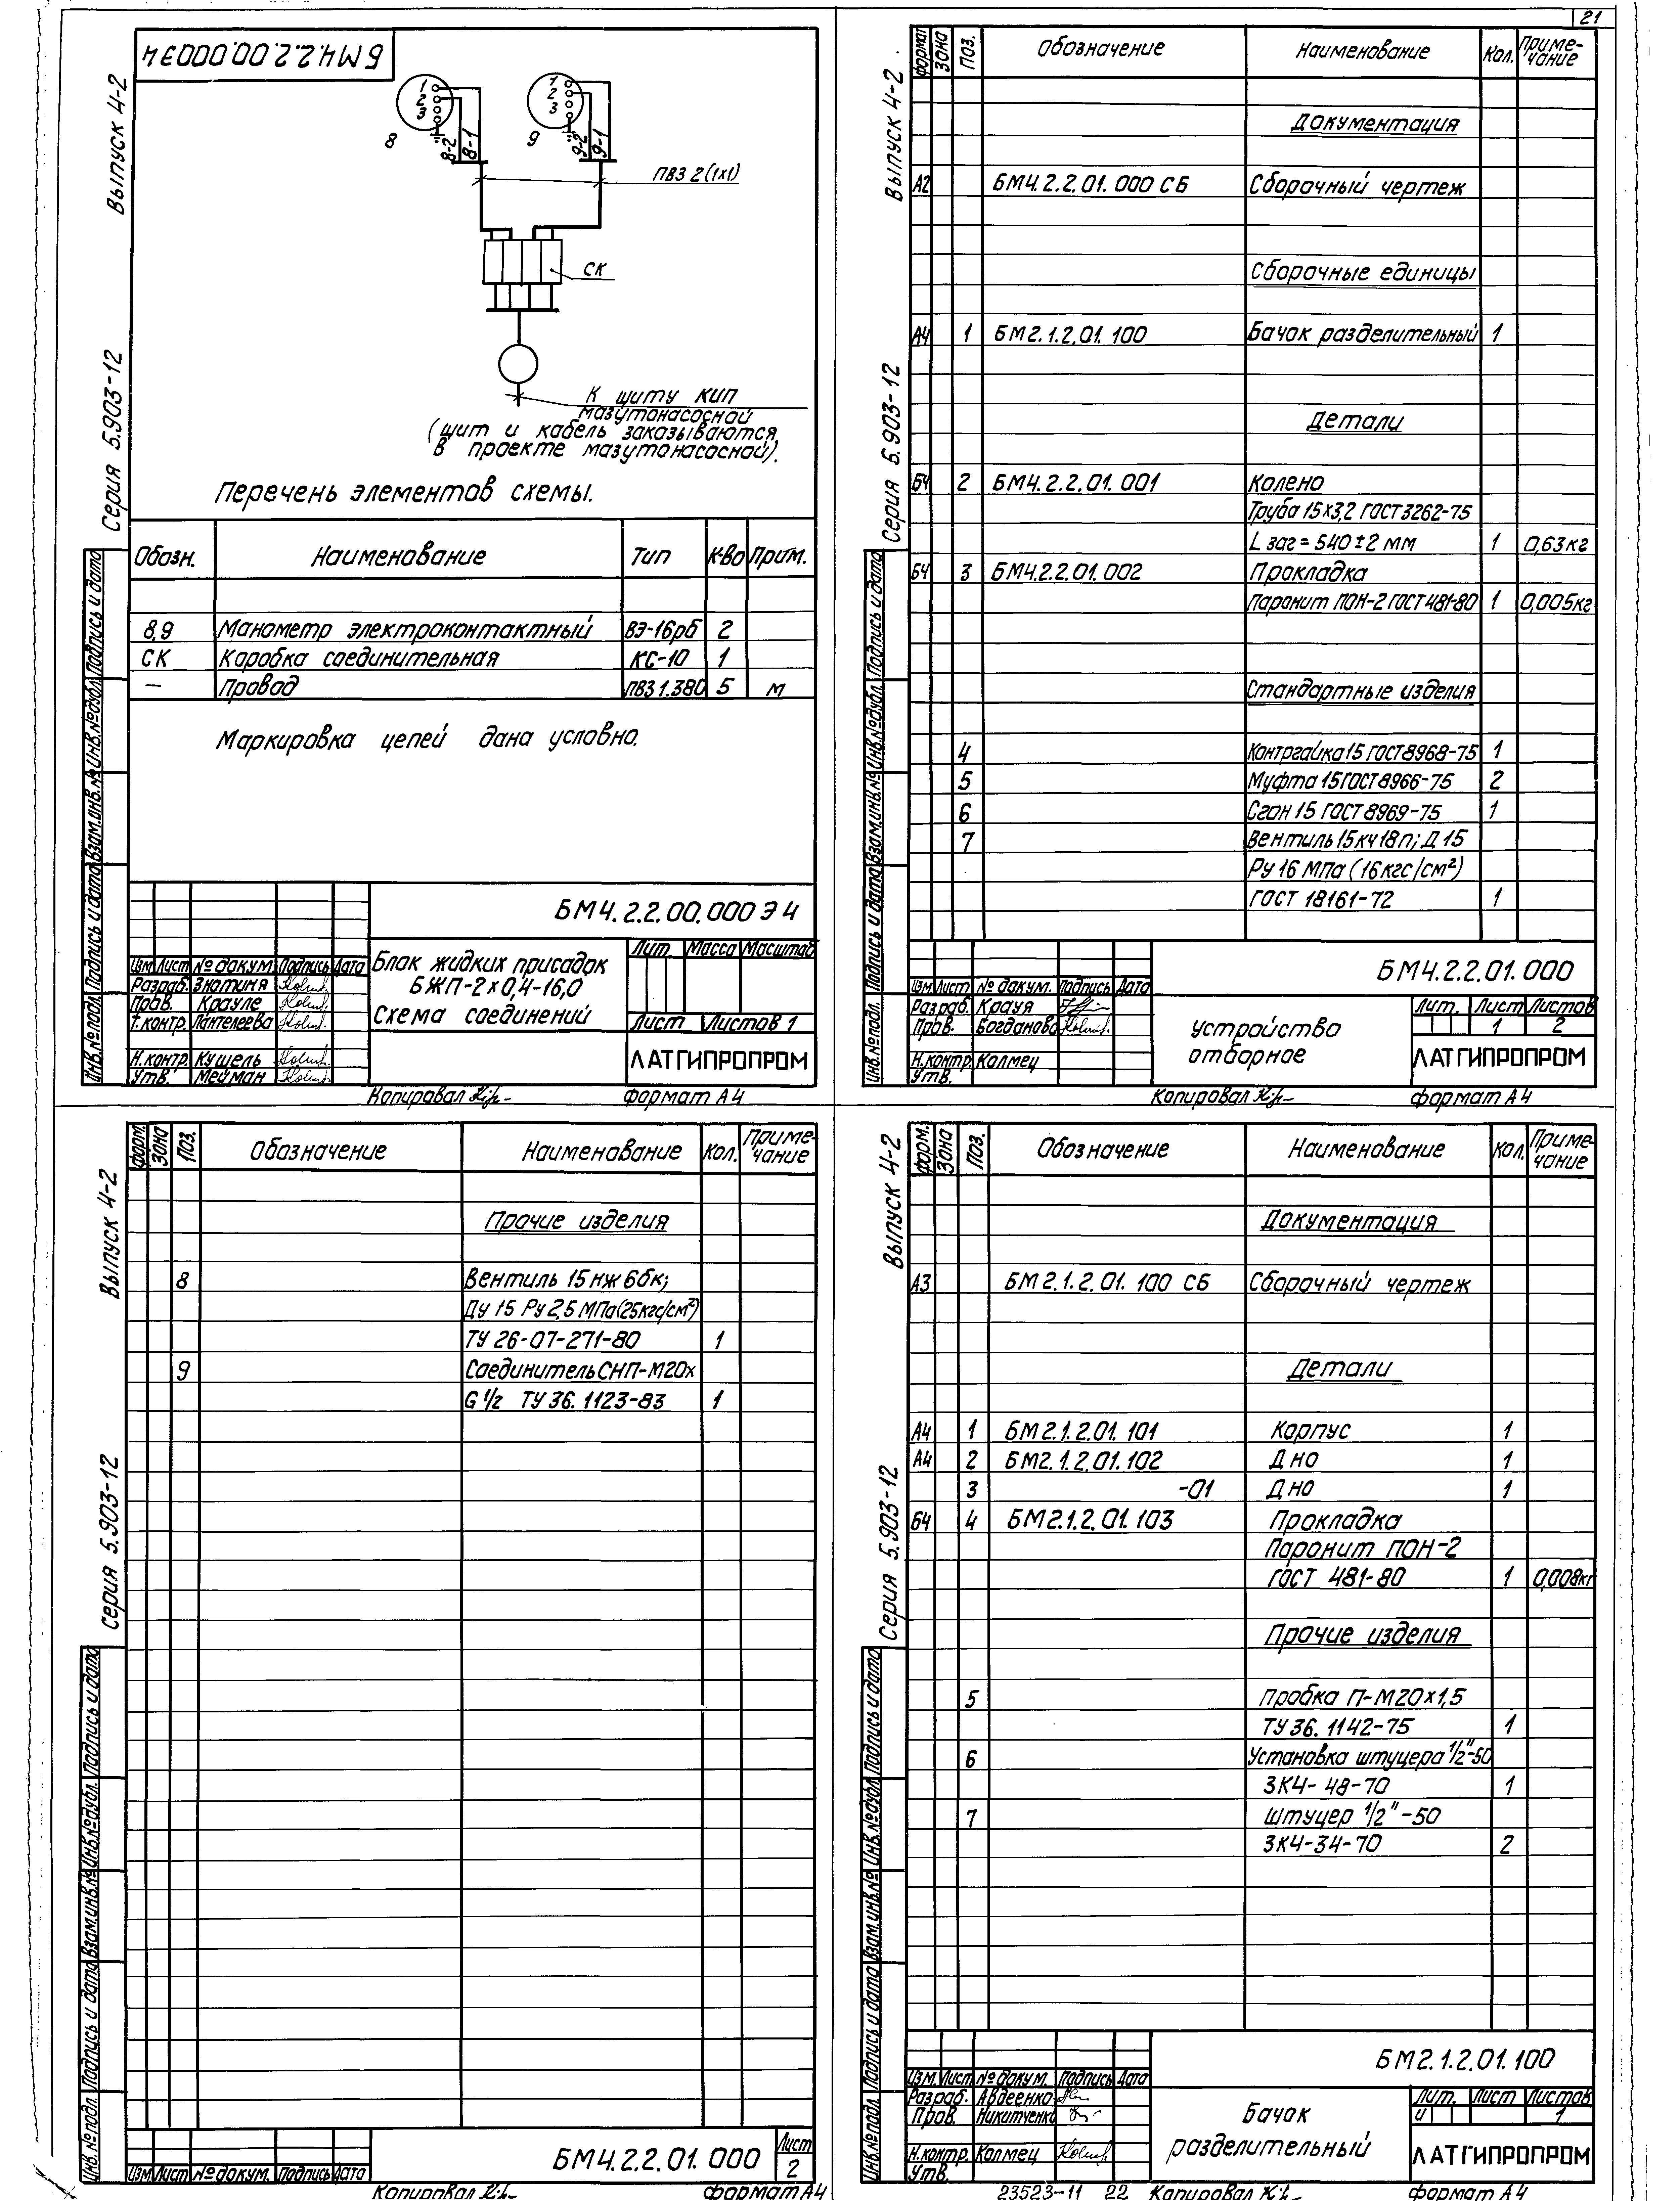 21
БМ4.2.2.00.000Э4
Выпуск 4-2
Серия 5.903-12
1
2
3
8
8-2
8-1
1
2
3
9
9-2
9-1
ПВ3 2(1х1)
СК
К щиту КИП
мазутонасосной
(щит и кабель заказываются
в проекте мазутонасосной).
Перечень элементов схемы.
Обозн. Наименование Тип К-во Прим.
8,9 Манометр электроконтактный ВЭ-16рб 2
СК Коробка соединительная КС-10 1
— Провод ПВ3 1.380 5 м
Маркировка цепей дана условно.
Инв.№подл. Подпись и дата Взам.инв.№ Инв.№дубл. Подпись и дата
БМ4.2.2.00.000Э4
Изм Лист № докум. Подпись Дата
Разраб. Знотиня
Пров. Крауле
Т.контр. Пантелеева
Н.контр. Кушель
Утв. Мейман
Блок жидких присадок
БЖП-2х0,4-16,0
Схема соединений
Лит. Масса Масштаб
Лист Листов 1
ЛАТГИПРОПРОМ
Копировал
формат А4
Выпуск 4-2
Серия 5.903-12
формат Зона Поз. Обозначение Наименование Кол. Приме-
чание
Документация
А2 БМ4.2.2.01.000 СБ Сборочный чертеж
Сборочные единицы
А4 1 БМ2.1.2.01.100 Бачок разделительный 1
Детали
Б4 2 БМ4.2.2.01.001 Колено
Труба 15х3,2 ГОСТ 3262-75
L заг = 540 ± 2 мм 1 0,63кг
Б4 3 БМ4.2.2.01.002 Прокладка
Паронит ПОН-2 ГОСТ 481-80 1 0,005кг
Стандартные изделия
4 Контргайка 15 ГОСТ 8968-75 1
5 Муфта 15 ГОСТ 8966-75 2
6 Сгон 15 ГОСТ 8969-75 1
7 Вентиль 15кч18п; Д 15
Ру 16 МПа (16кгс/см²)
ГОСТ 18161-72 1
Инв.№подл. Подпись и дата Взам.инв.№ Инв.№дубл. Подпись и дата
БМ4.2.2.01.000
Изм Лист № докум. Подпись Дата
Разраб. Крауя
Пров. Богданова
Н.контр. Колмец
Утв.
Устройство
отборное
Лит. Лист Листов
1 2
ЛАТГИПРОПРОМ
Копировал
формат А4
Выпуск 4-2
Серия 5.903-12
форм. Зона Поз. Обозначение Наименование Кол. Приме-
чание
Прочие изделия
8 Вентиль 15нж6бк;
Ду 15 Ру 2,5 МПа(25кгс/см²)
ТУ 26-07-271-80 1
9 Соединитель СНП-М20х
G 1/2 ТУ 36.1123-83 1
Инв.№подл. Подпись и дата Взам.инв.№ Инв.№дубл. Подпись и дата
Изм Лист № докум. Подпись Дата
БМ4.2.2.01.000
Лист
2
Копировал
формат А4
Выпуск 4-2
Серия 5.903-12
форм. Зона Поз. Обозначение Наименование Кол. Приме-
чание
Документация
А3 БМ2.1.2.01.100 СБ Сборочный чертеж
Детали
А4 1 БМ2.1.2.01.101 Корпус 1
А4 2 БМ2.1.2.01.102 Дно 1
3 -01 Дно 1
Б4 4 БМ2.1.2.01.103 Прокладка
Паронит ПОН-2
ГОСТ 481-80 1 0,008кг
Прочие изделия
5 Пробка П-М20х1,5
ТУ 36.1142-75 1
6 Установка штуцера 1/2"-50
ЗК4-48-70 1
7 Штуцер 1/2"-50
ЗК4-34-70 2
Инв.№подл. Подпись и дата Взам.инв.№ Инв.№дубл. Подпись и дата
БМ2.1.2.01.100
Изм. Лист № докум. Подпись Дата
Разраб. Авдеенко
Пров. Никитченко
Н.контр. Колмец
Утв.
Бачок
разделительный
Лит. Лист Листов
и 1
ЛАТГИПРОПРОМ
23523-11 22 Копировал
формат А4